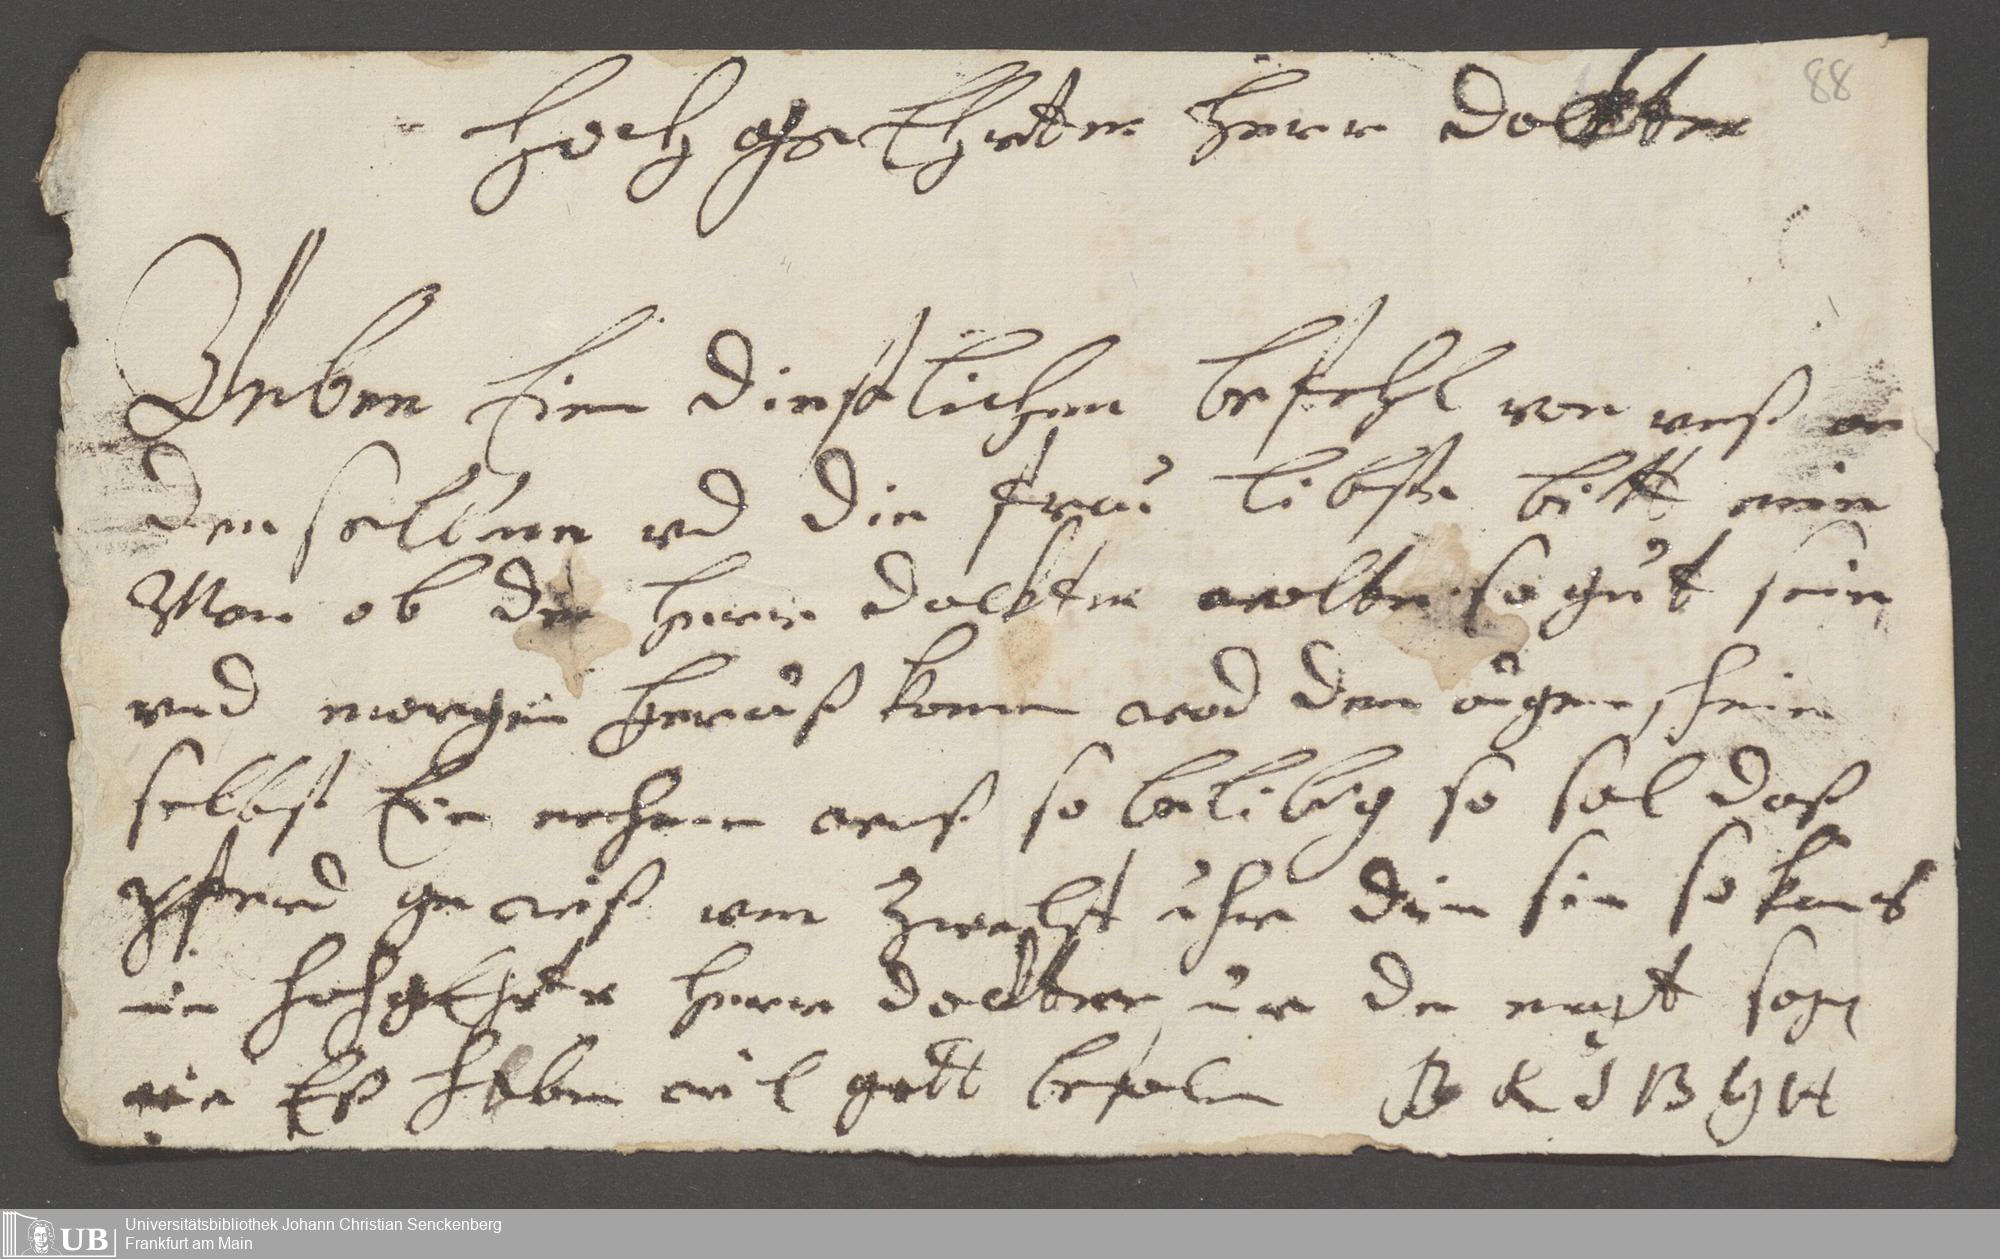 88
Hoch ge Ehrter Herr dockter
Neben Eien dienstlichen befehl von unß an
den selben und die frau libste bitt mein
Man ob der Herr dockter wolte so gut sein
und morgen herauß komen und den augen schein
selbst Ein nehmen wanß so belibig so sol daß
pferd ge wiß um Zwelft uhr din sin so kan es
mein hoch gEhrter Herr dockter nur de magt sagen
wie Eß haben wil gott befolen B K J B G H
Universitätsbibliothek Johann Christian Senckenberg
Frankfurt am Main
UB